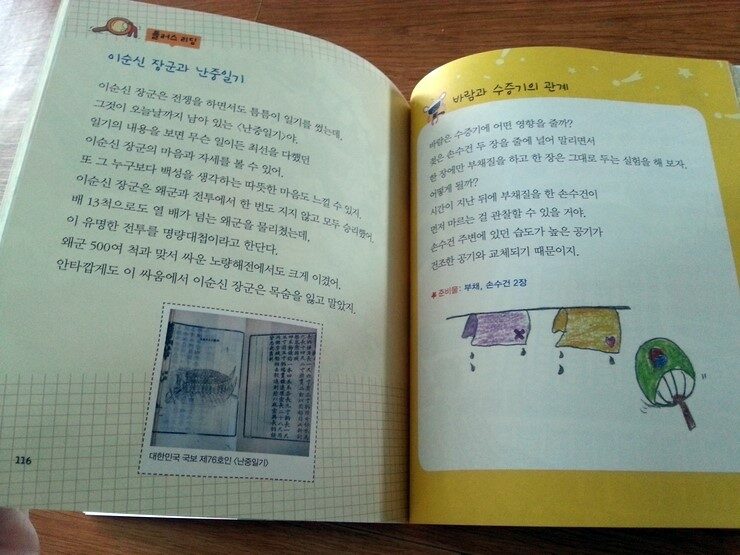 플러스 리딩
이순신 장군과 난중일기
이순신 장군은 전쟁을 하면서도 틈틈이 일기를 썼는데,
그것이 오늘날까지 남아 있는 <난중일기>야.
일기의 내용을 보면 무슨 일이든 최선을 다했던
이순신 장군의 마음과 자세를 볼 수 있어.
또 그 누구보다 백성을 생각하는 따뜻한 마음도 느낄 수 있지.
이순신 장군은 왜군과 전투에서 한 번도 지지 않고 모두 승리했어.
배 13척으로도 열 배가 넘는 왜군을 물리쳤는데,
이 유명한 전투를 명량대첩이라고 한단다.
왜군 500여 척과 맞서 싸운 노량해전에서도 크게 이겼어.
안타깝게도 이 싸움에서 이순신 장군은 목숨을 잃고 말았지.
대한민국 국보 제76호인 <난중일기>
116
바람과 수증기의 관계
바람은 수증기에 어떤 영향을 줄까?
젖은 손수건 두 장을 줄에 널어 말리면서
한 장에만 부채질을 하고 한 장은 그대로 두는 실험을 해 보자.
어떻게 될까?
시간이 지난 뒤에 부채질을 한 손수건이
먼저 마르는 걸 관찰할 수 있을 거야.
손수건 주변에 있던 습도가 높은 공기가
건조한 공기와 교체되기 때문이지.
준비물: 부채, 손수건 2장